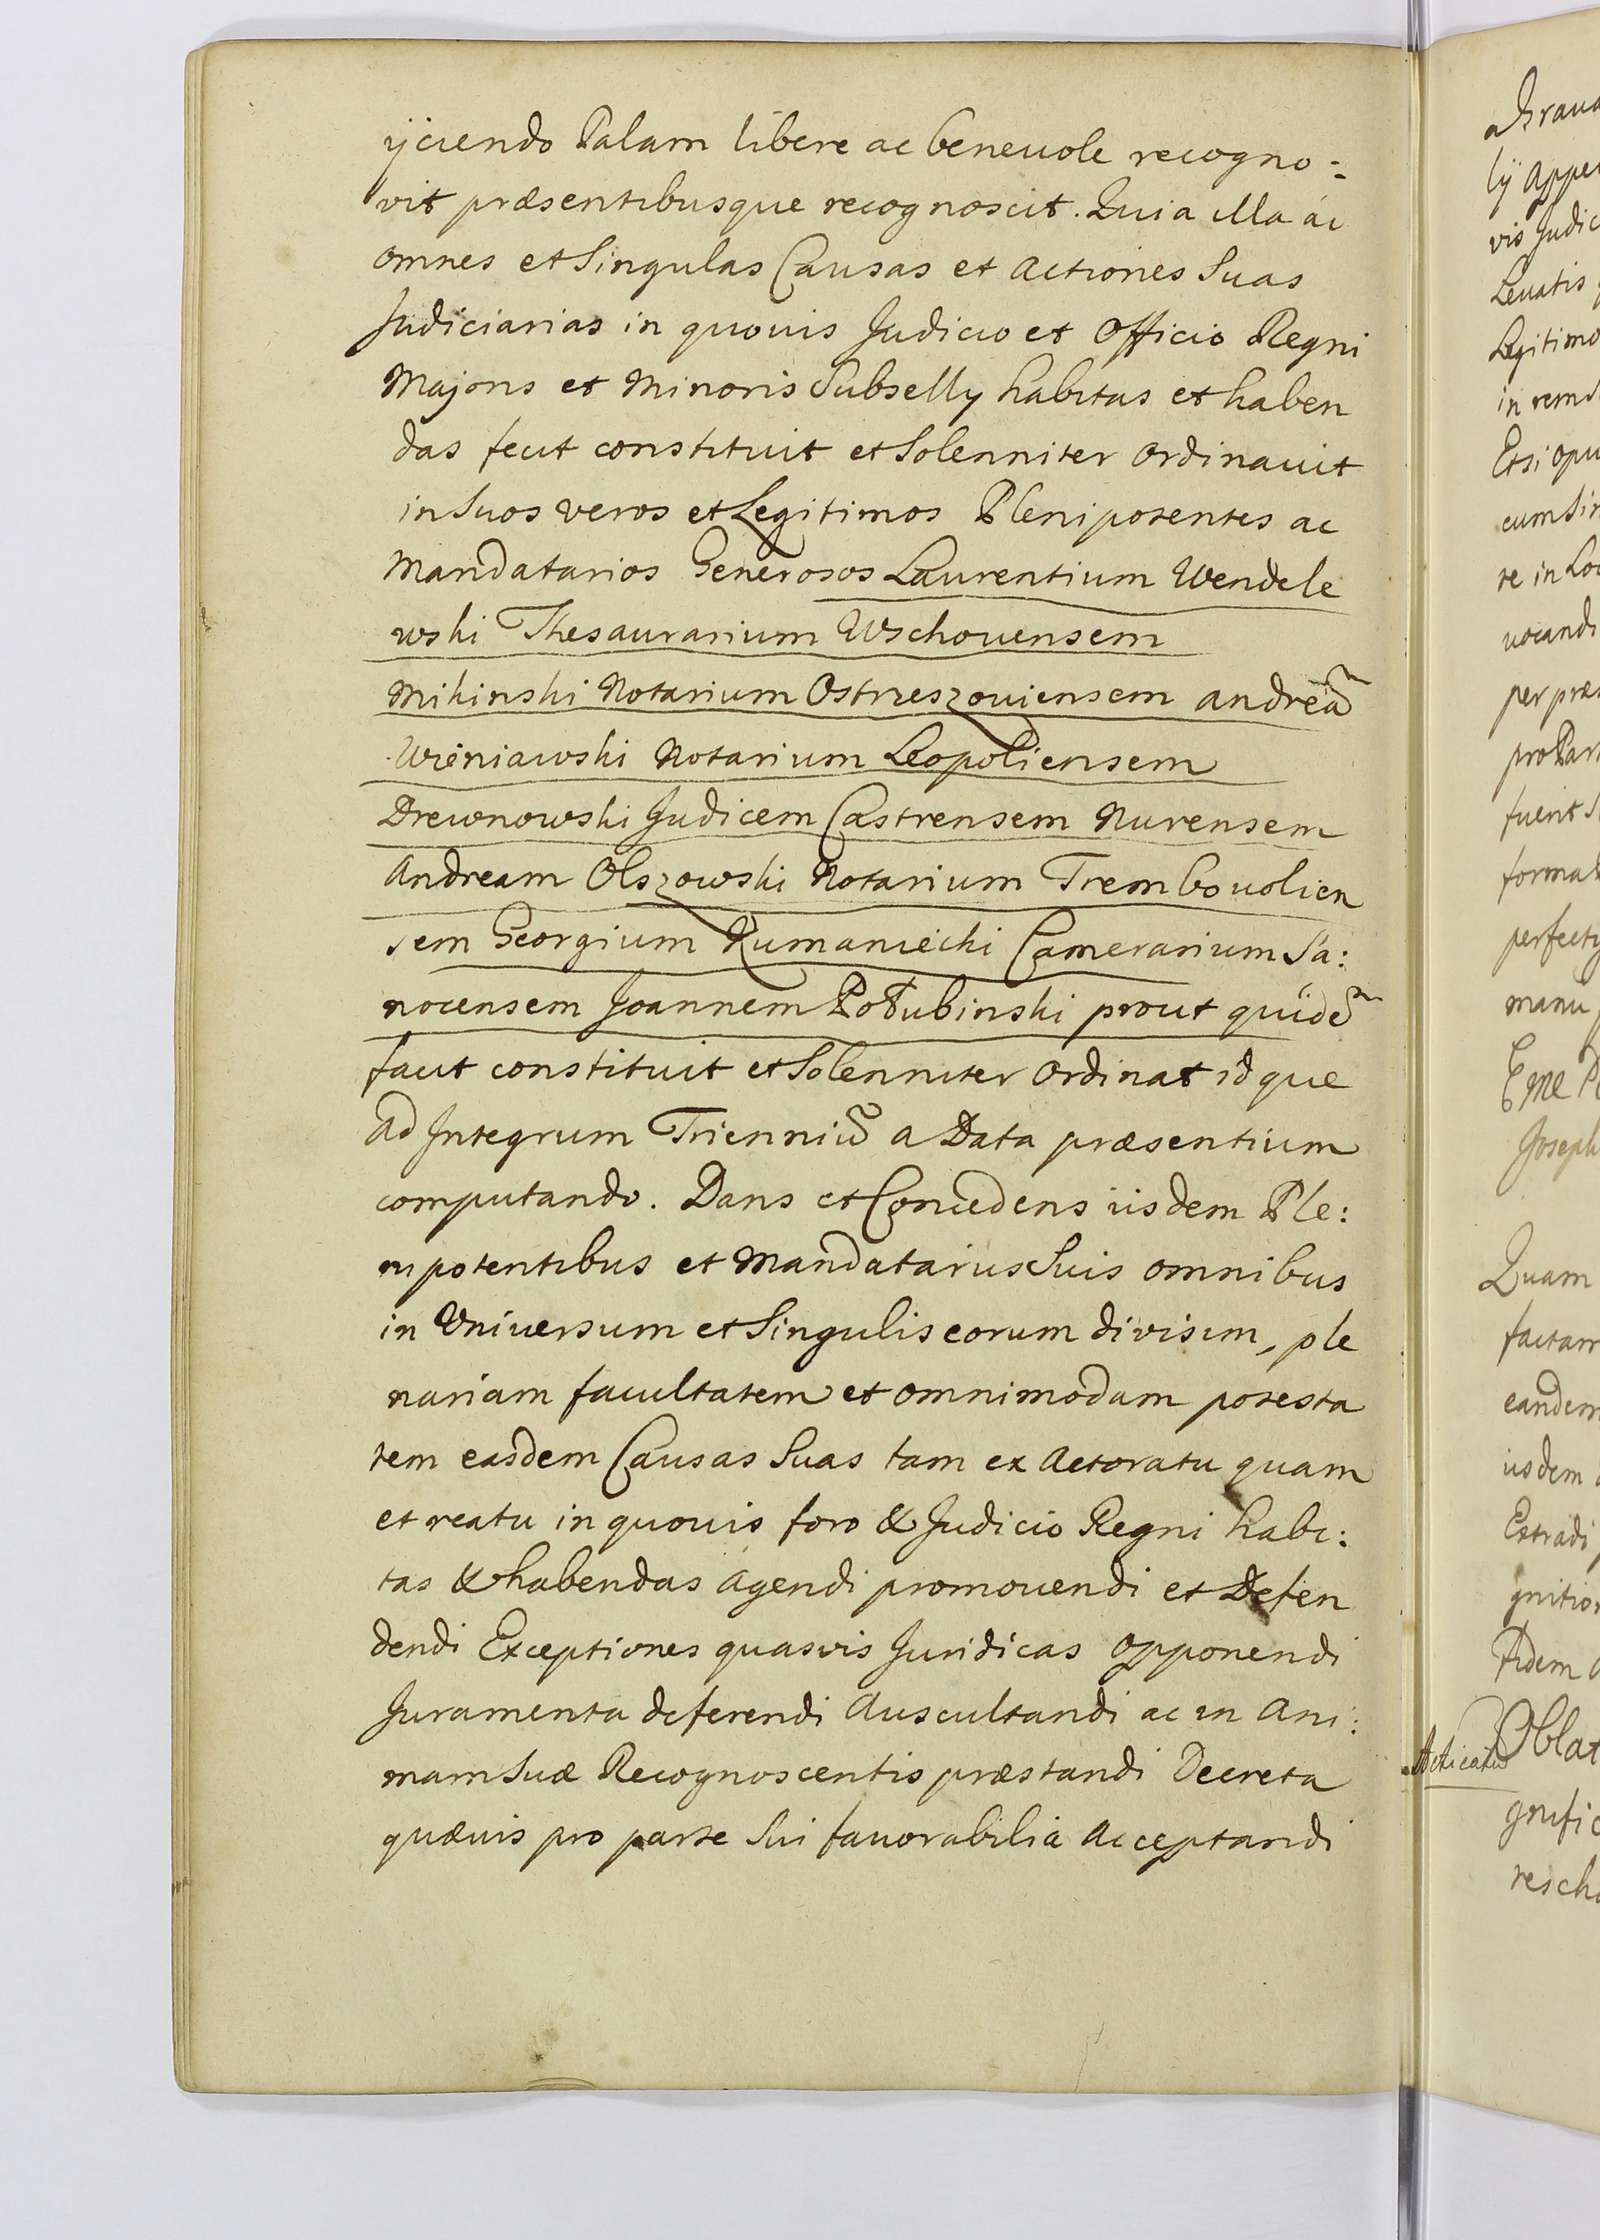 ijciendo Palam libere ac beneuole recogno:
vit præsentibusque recognoscit. Quia illa ac
omnes et Singulas Causas et actiones Suas
Judiciarias in quouis Judicio et officio Regni
Majoris et Minoris Subselly habitas et haben
das fecit constituit et Solenniter ordinauit
in Suos veros et Legitimos Plenipotentes ac
Mandatarios Generosos Laurentium Wendele
wski Thesaurarium Wschouensem
Mikinski Notarium Ostrzeszouiensem andreã
Wieniawski Notarium Leopoliensem
Drewnowski Judicem Castrensem Nurensem
Andream Olszowski Notarium Trembouolien
sem Georgium Rumaniecki Camerarium Sa:
nocensem Joannem Potubinski prout quidẽ
facit constituit et Solenniter ordinat idque
ad Integrum Trienniũ a Data præsentium
computando. Dans et Concedens iisdem Ple:
nipotentibus et Mandatariis Suis omnibus
in Vniuersum et Singulis eorum divisim, ple
nariam facultatem et omnimodam potesta
tem easdem Causas Suas tam ex actoratu quam
et reatu in quouis foro & Judicio Regni habi:
tas & habendas agendi promouendi et Defen
dendi Exceptiones quasvis Juridicas opponendi
Juramenta deferendi Auscultandi ac in Ani:
mam Suæ Recognoscentis præstandi Decreta
quæuis pro parte Sui fauorabilia acceptandi
lij appe
vis Judic
Leuatis
Legitimo
in rem
Etsi opu
cum Sin
te in Loc
uocandi
per præs
pro Par
fuerit S
format
perfecty
manu
Joseph
Quam
factam
eandem
iisdem
Extradi
gnition
fidem a
Oblat
gnific
resch